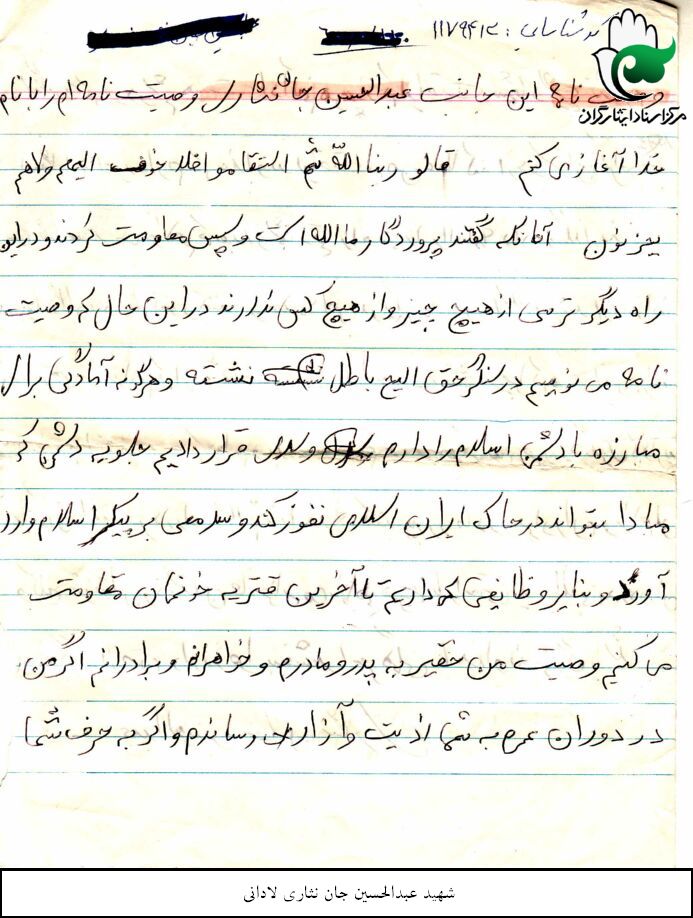 کد شناسایی: ۱۱۷۹۴۱۲
مرکز اسناد ایثارگران
وصیت نامه این جانب عبدالحسین جان نثاری وصیت نامه ام را با نام
خدا آغاز می کنم قالو ربنا الله ثم التقامو افلا خوف الیهم ولاهم
یحزنون آنانکه گفتند پروردگار ما الله است و سپس مقاومت کردند و در این
راه دیگر ترسی از هیچ چیز و از هیچ کس ندارند در این حال که وصیت
نامه می نویسم در سنگر حق الیح باطل نشسته و هرگونه آمادگی برای
مبارزه با دشمن اسلام را دارم و قرار دادیم جلویه دشمن که
مبادا بتواند در خاک ایران اسلامی نفوز کند و بر پیکر اسلام وارد
آورد و بنابر وظایفی که داریم تا آخرین قتریه خونمان مقاومت
می کنم وصیت من حقیر به پدر و مادرم و خواهرانم و برادرانم اگر من
در دوران عمرم به شما اذیت و آزاری رساندم و اگر به حرف شما
شهید عبدالحسین جان نثاری لادانی